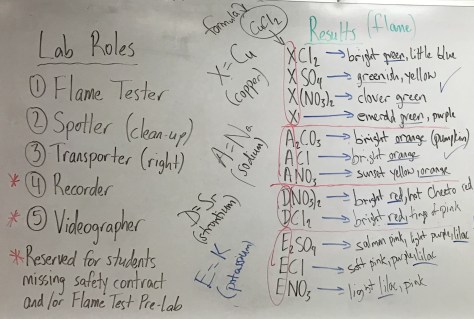 Lab Roles
① Flame Tester
② Spotter (clean-up)
③ Transporter (right)
* ④ Recorder
* ⑤ Videographer
* Reserved for students
missing safety contract
and/or Flame Test Pre-Lab
formula
CuCl₂
X = Cu
(copper)
A = Na
(sodium)
D = Sr
(strontium)
E = K
(potassium)
Results (flame)
XCl₂ → bright green, little blue
XSO₄ → greenish, yellow
X(NO₃)₂ → clover green
X → emerald green, purple
A₂CO₃ → bright orange (pumpkin)
ACl → bright orange
ANO₃ → sunset yellow, orange
DNO₃)₂ → bright red, hot Cheeto red
DCl₂ → bright red, tinge of pink
E₂SO₄ → salmon pink, light purple, lilac
ECl → soft pink, purple, lilac
ENO₃ → light lilac, pink